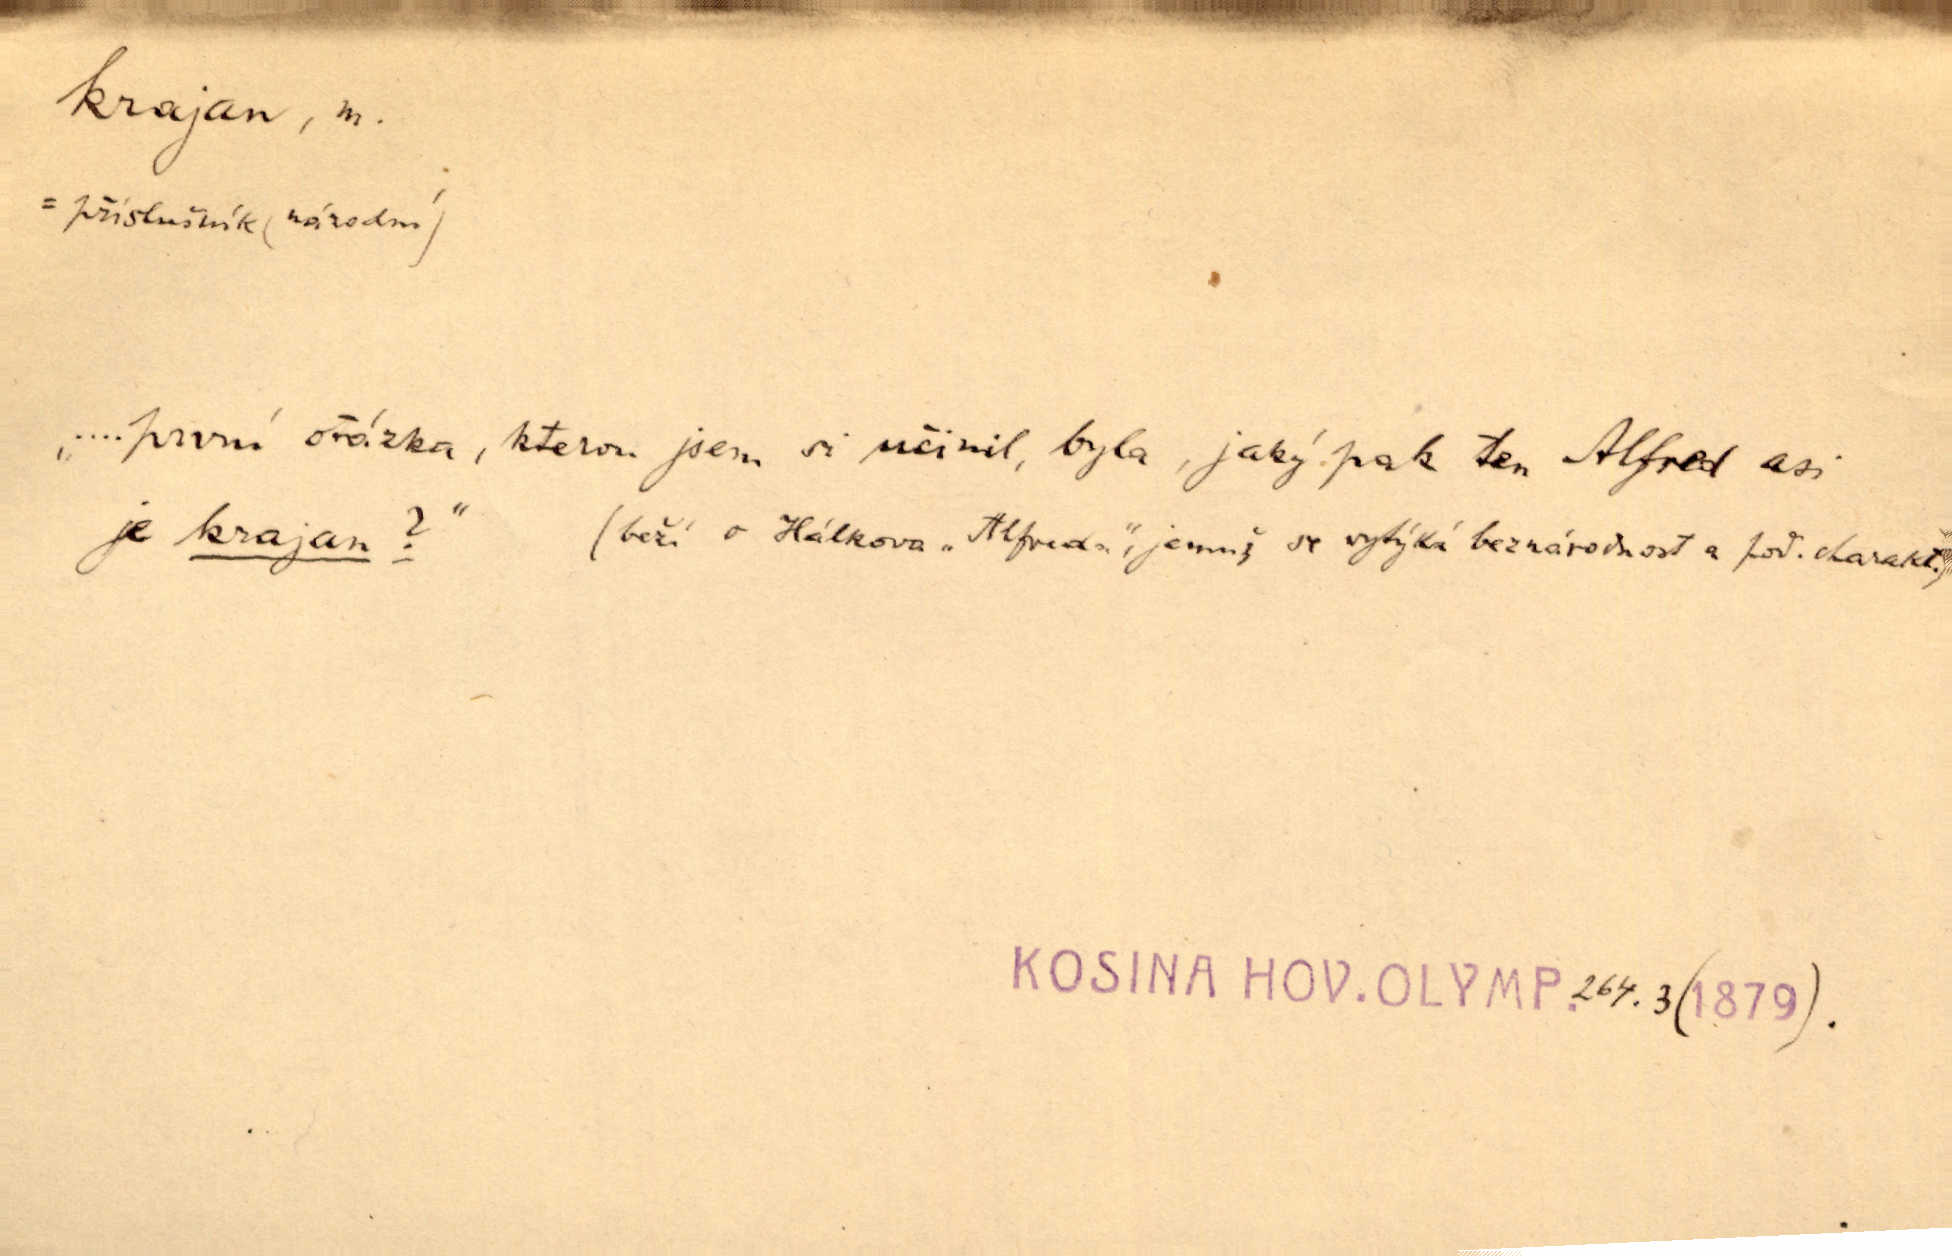 krajan, m.
= příslušník (národní)
„....první otázka, kterou jsem si učinil, byla, jaký pak ten Alfred asi
je krajan?“ (beží o Hálkova „Alfreda“, jemuž se vytýká beznárodnost a pod. charakt.)
KOSINA HOV. OLYMP. 264. 3 (1879).